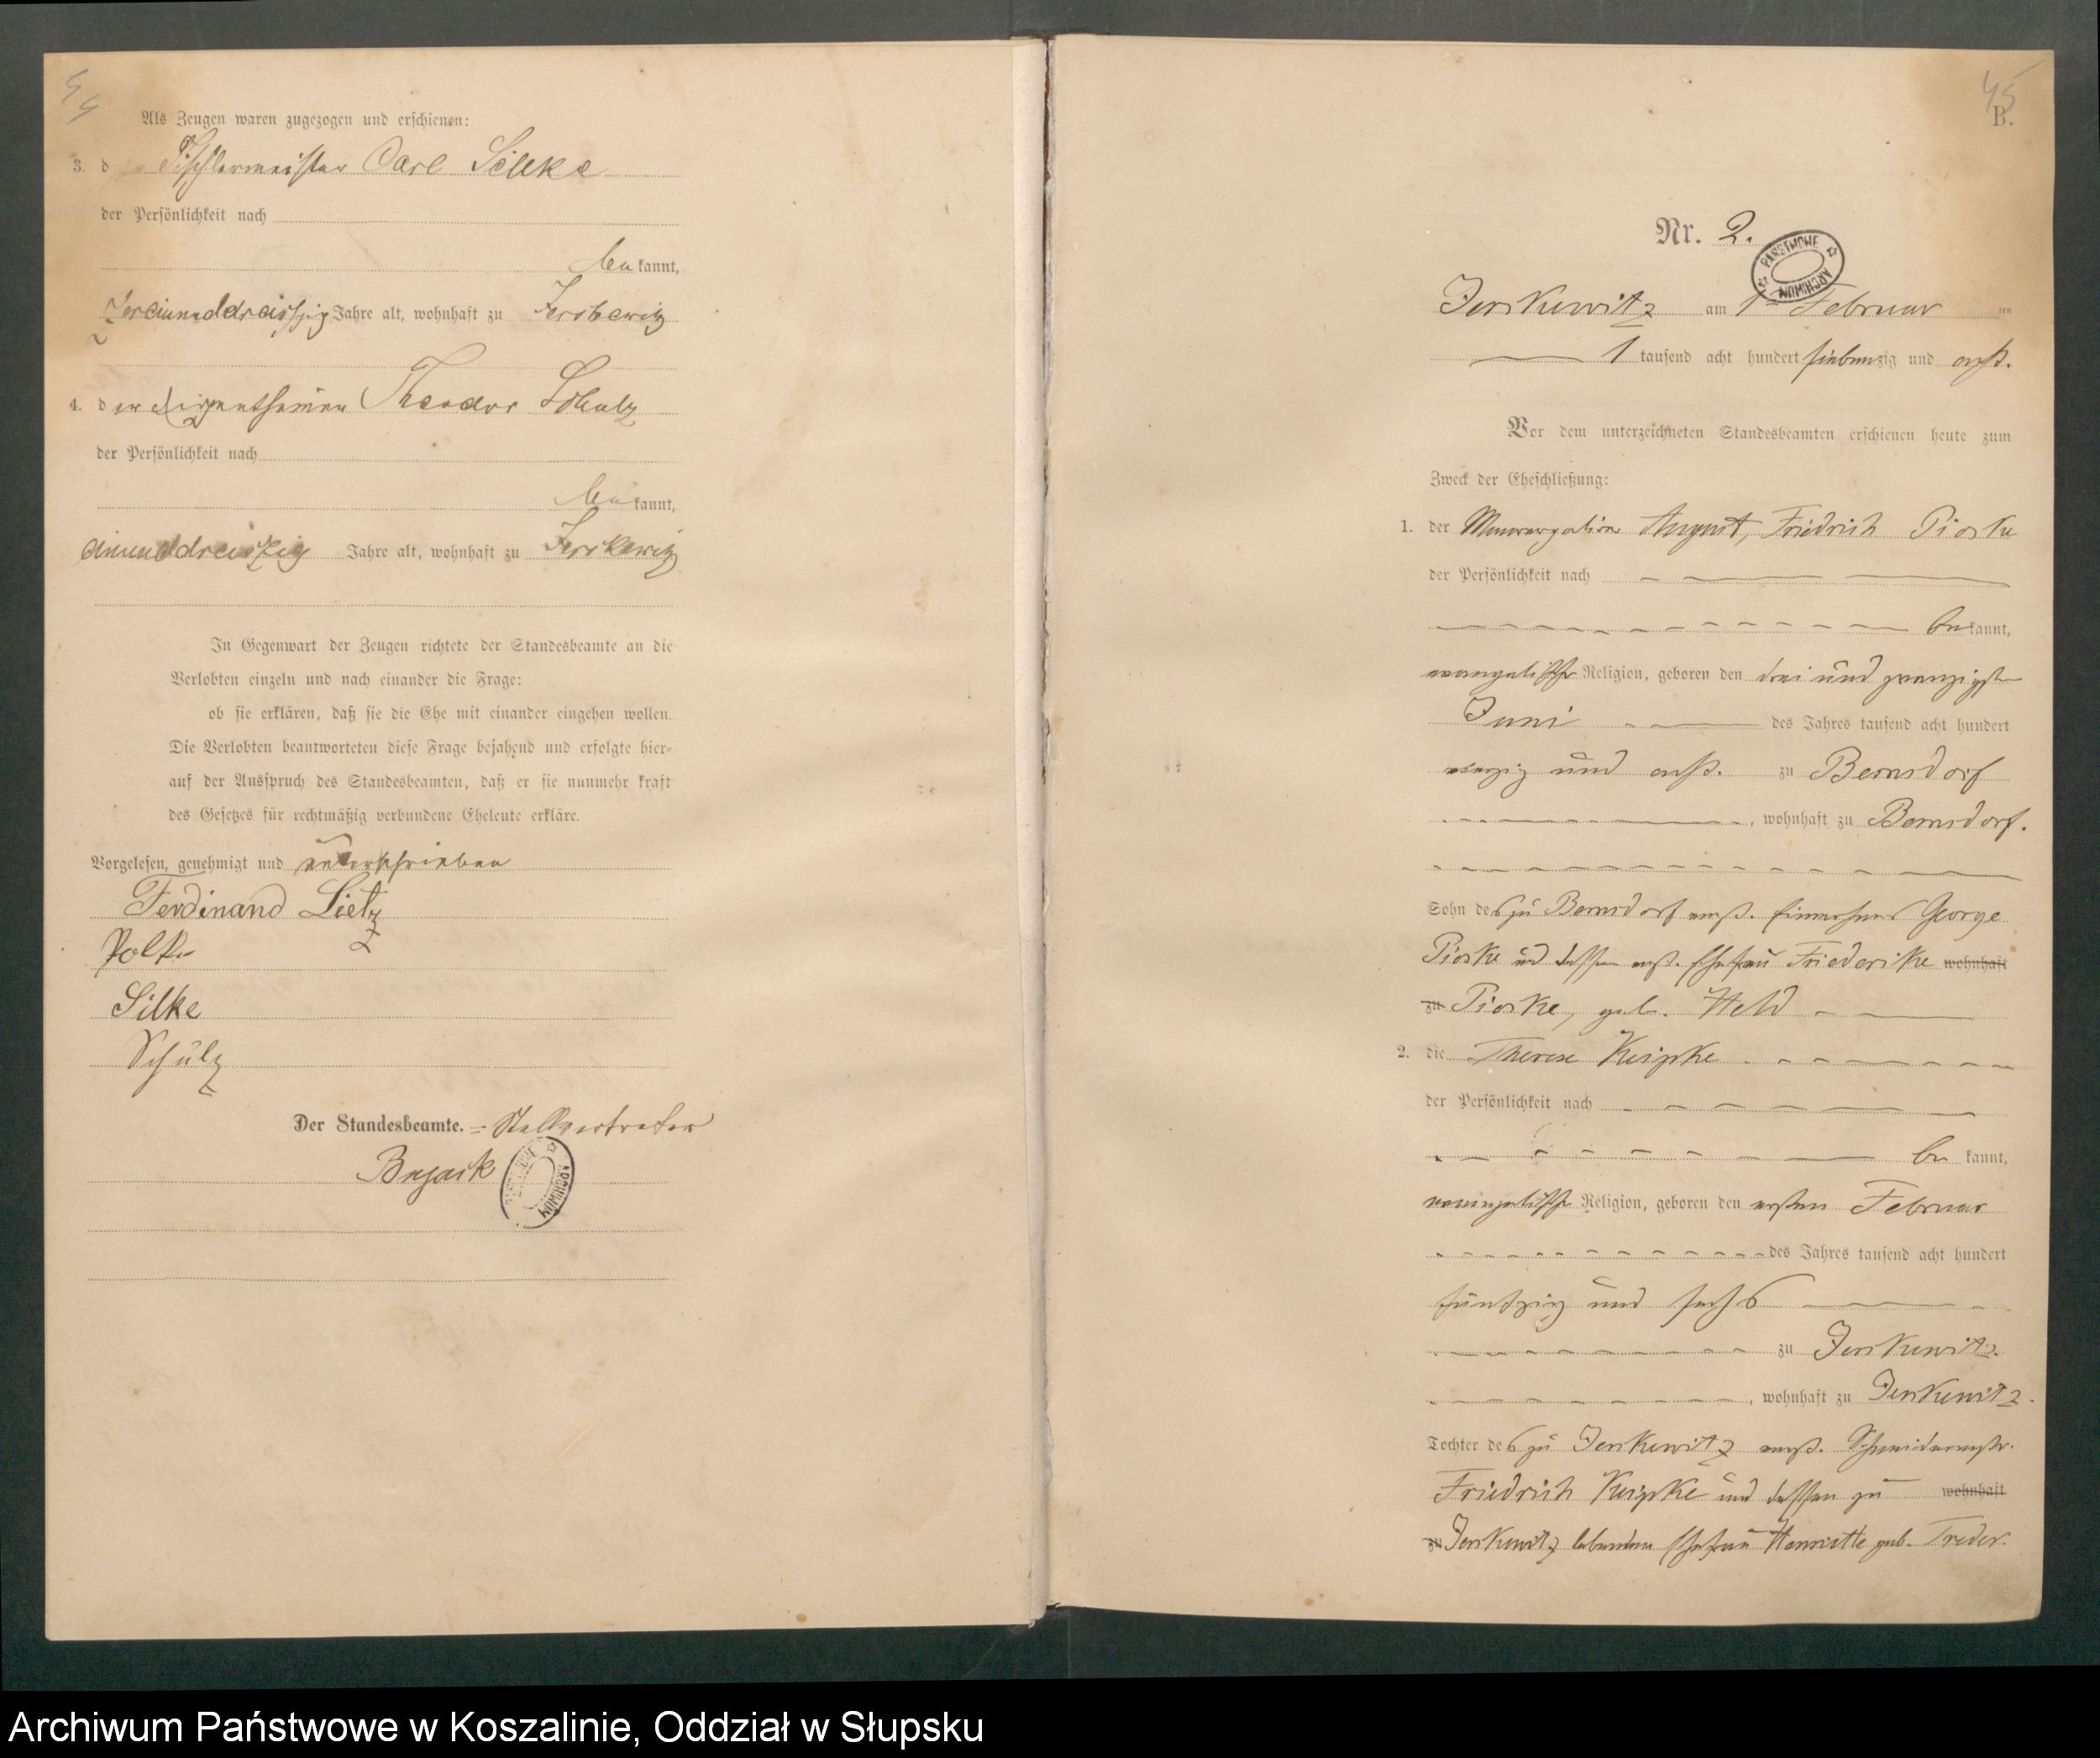 44
Als Zeugen waren zugezogen und erschienen:
3. d Tischlermeister Carl Silke
der Persönlichkeit nach
bekannt,
zweiunddreißig Jahre alt, wohnhaft zu Jerskewitz
4. der Eigenthümer Theodor Schulz
der Persönlichkeit nach
bekannt,
einunddreiszig Jahre alt, wohnhaft zu Jerskewitz
In Gegenwart der Zeugen richtete der Standesbeamte an die
Verlobten einzeln und nach einander die Frage:
ob sie erklären, daß sie die Ehe mit einander eingehen wollen.
Die Verlobten beantworteten diese Frage bejahend und erfolgte hier-
auf der Ausspruch des Standesbeamten, daß er sie nunmehr kraft
des Gesetzes für rechtmäßig verbundene Eheleute erkläre.
Vorgelesen, genehmigt und unterschrieben
Ferdinand Lietz
Silke
Schülz
Der Standesbeamte. = Stellvertreter
ARCHIWUM
45
B.
Nr. 2.
PAŃSTWOWE ARCHIWUM
Jerskewitz am 1 Februar ten
1 tausend acht hundert siebenzig und acht.
Vor dem unterzeichneten Standesbeamten erschienen heute zum
Zweck der Eheschließung:
1. der Maurergeselle August, Friedrich Pioske
der Persönlichkeit nach
bekannt,
evangelischer Religion, geboren den drei und zwanzigsten
Juni des Jahres tausend acht hundert
vierzig und acht. zu Bernsdorf
, wohnhaft zu Bernsdorf.
Sohn des zu Bernsdorf verst. Einwohners George
Pioske und dessen verst. Ehefrau Friederike wohnhaft
zu Pioske, geb. Held
2. die Therese Keipke
der Persönlichkeit nach
bekannt,
evangelischer Religion, geboren den ersten Februar
des Jahres tausend acht hundert
fünfzig und sechs
zu Jerskewitz.
, wohnhaft zu Jerskewitz.
Tochter des zu Jerskewitz verst. Schneidermstr.
Friedrich Keipke und dessen zu wohnhaft
zu Jerskewitz lebenden Ehefrau Henriette geb. Treder.
Archiwum Państwowe w Koszalinie, Oddział w Słupsku